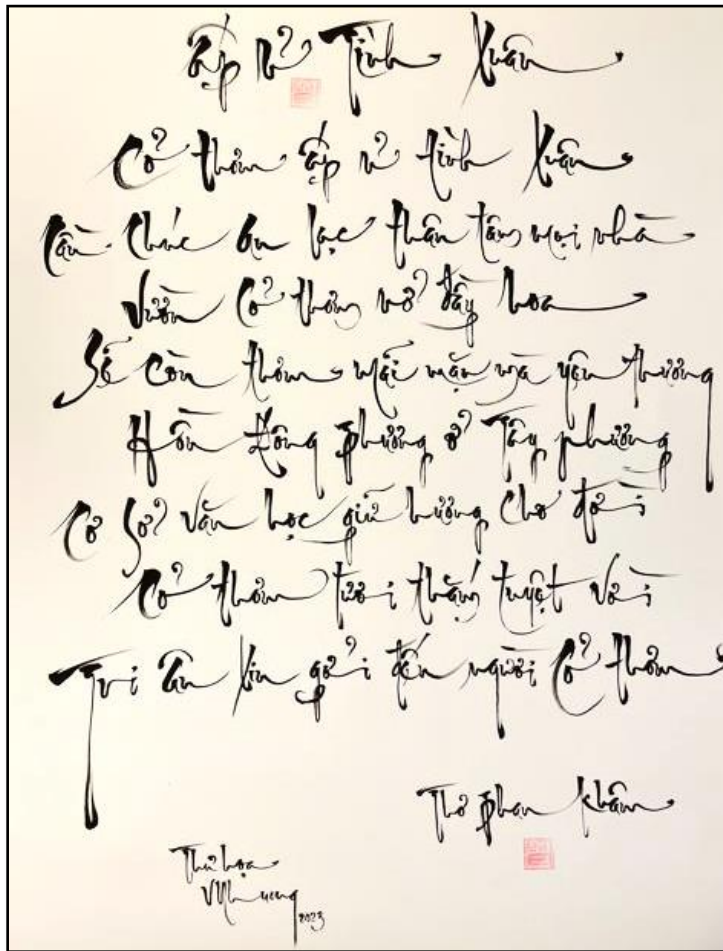 Ấp ủ Tình Xuân
Cỏ thơm ấp ủ tình Xuân
Cầu Chúc An lạc thân tâm mọi nhà
Vườn Cỏ thơm nở đầy hoa
Sẽ còn thơm mãi mặn mà yêu thương
Hồn Đông phương ở Tây phương
Cơ Sở Văn học giữ hương Cho đời
Cỏ thơm tươi thắm tuyệt vời
Tri Ân Xin gởi đến người Cỏ thơm
Thơ Phan Khâm
Thư họa
2023